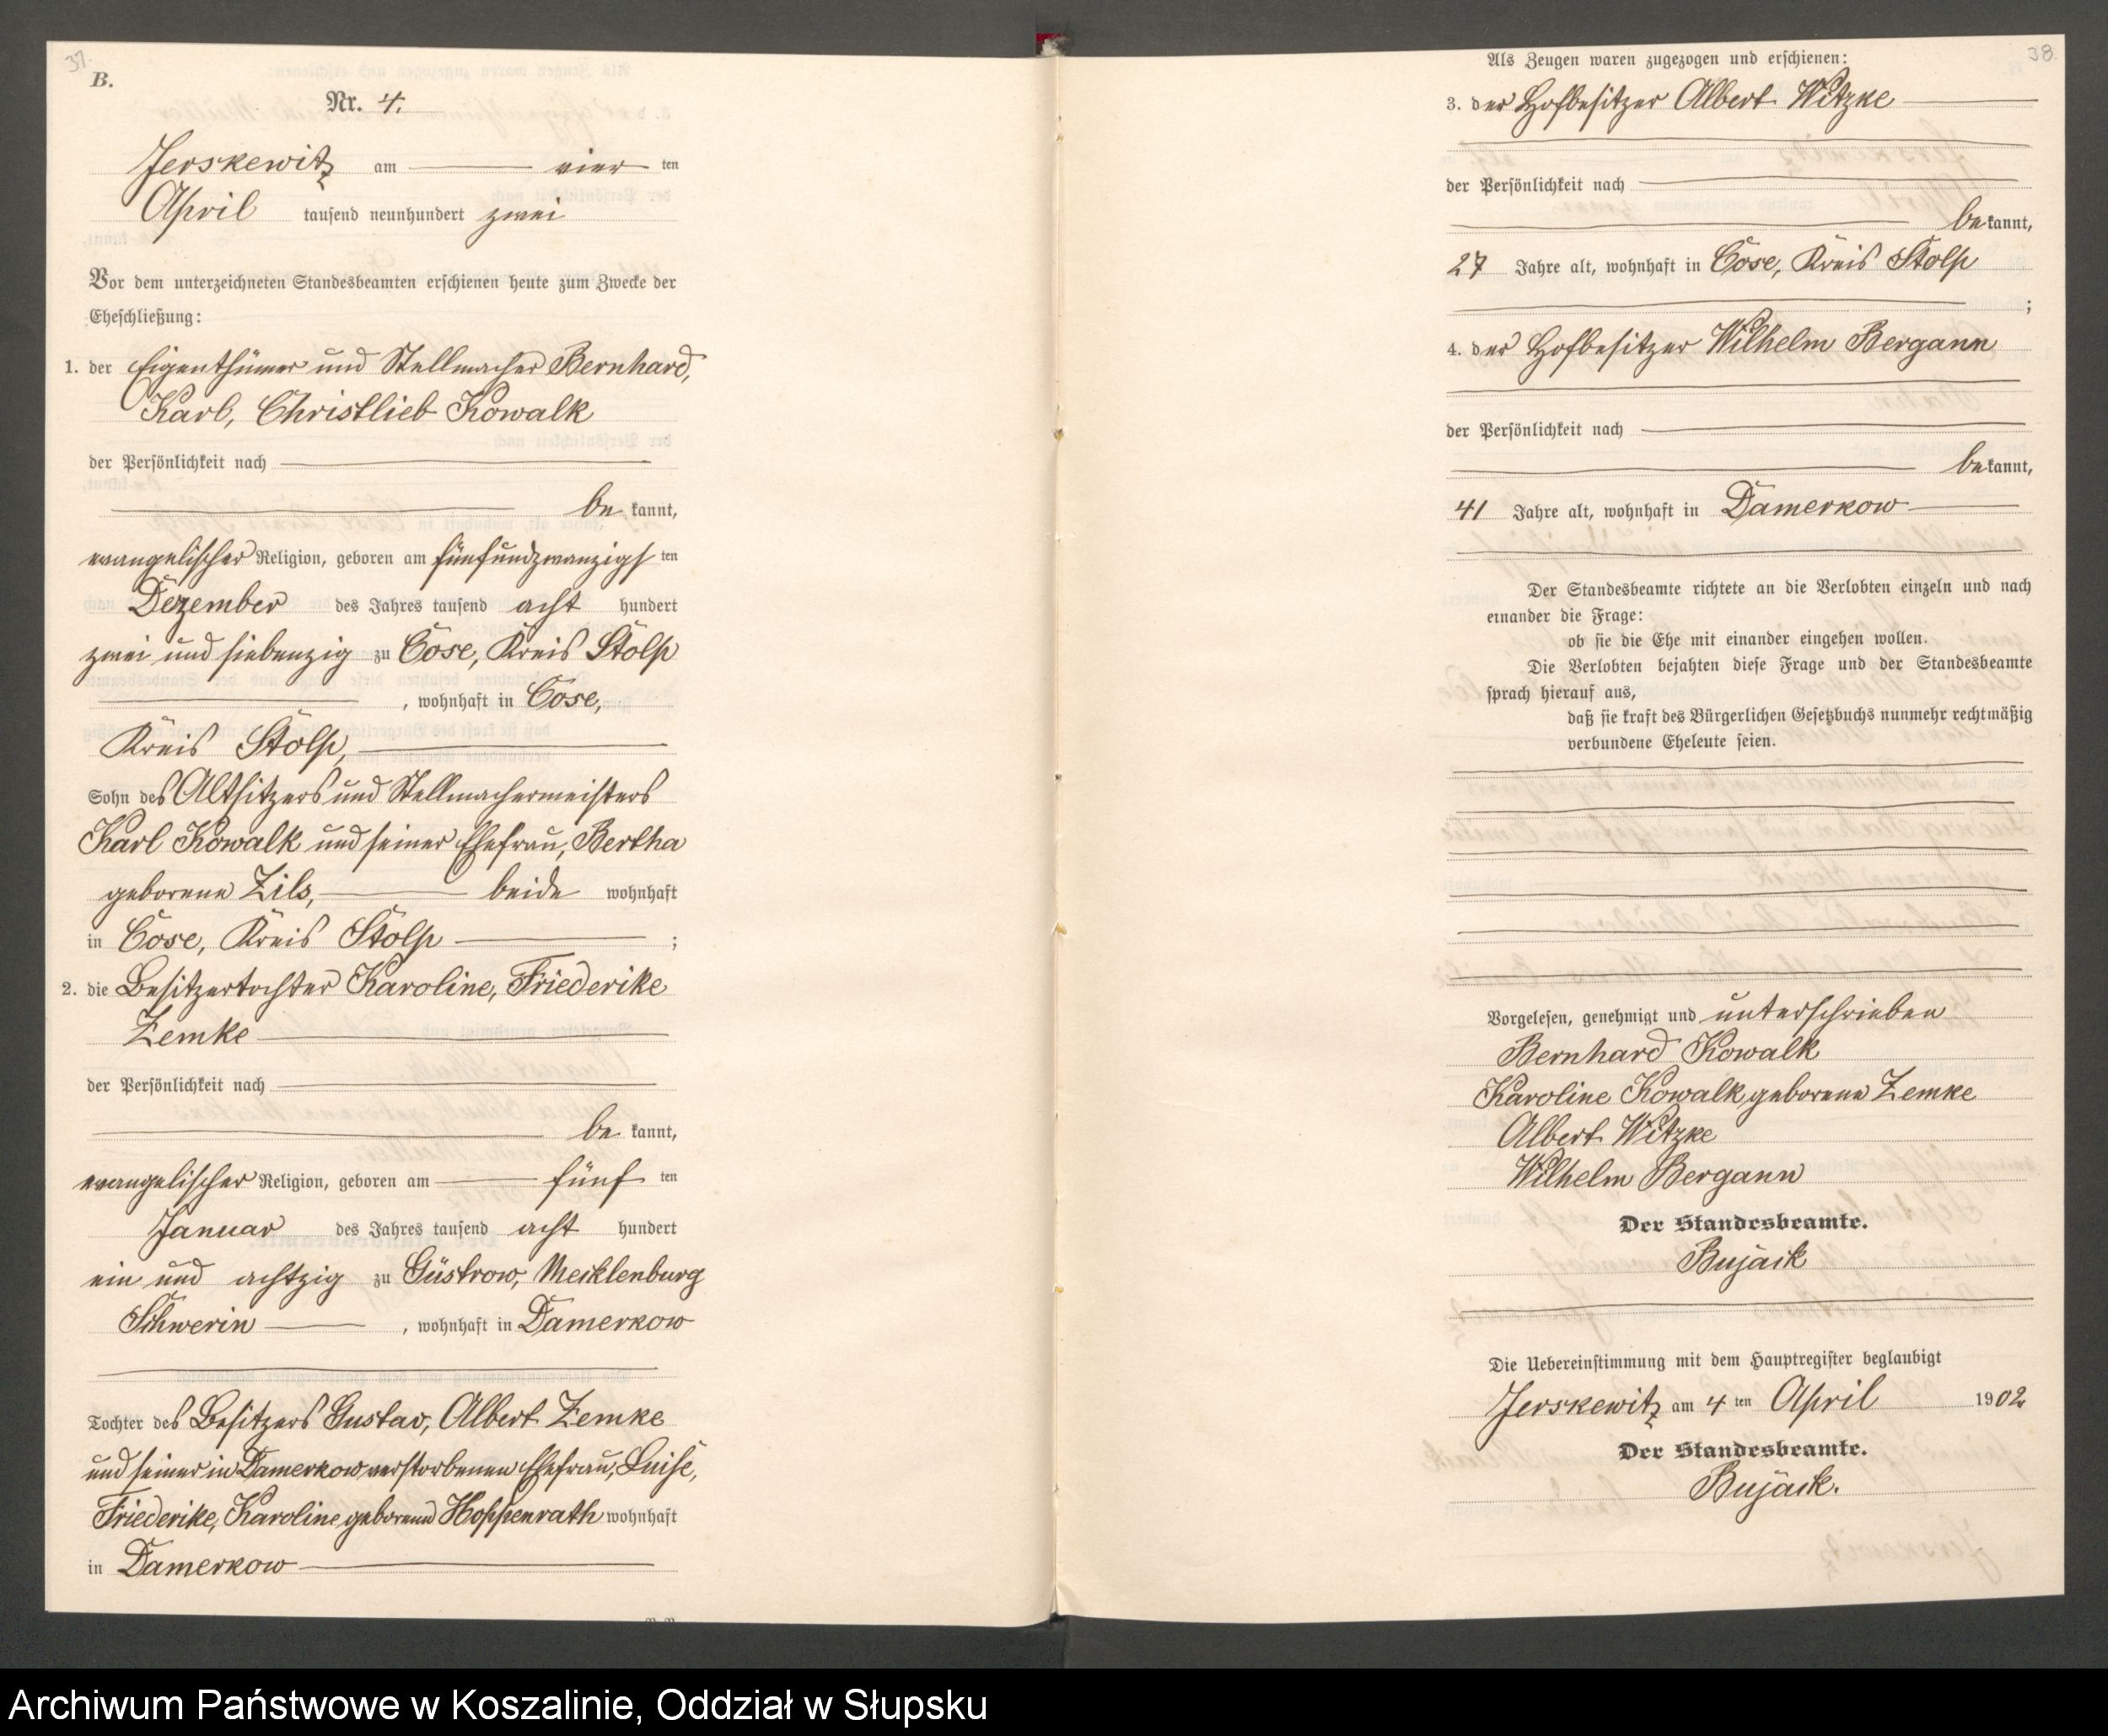 37.
B.
Nr. 4.
Jerskewitz am vier ten
April tausend neunhundert zwei
Vor dem unterzeichneten Standesbeamten erschienen heute zum Zwecke der
Eheschließung:
1. der Eigenthümer und Stellmacher Bernhard,
Karl, Christlieb Kowalk
der Persönlichkeit nach
be kannt,
evangelischer Religion, geboren am fünfundzwanzigs ten
Dezember des Jahres tausend acht hundert
zwei und siebenzig zu Cose, Kreis Stolp
, wohnhaft in Cose,
Kreis Stolp,
Sohn des Altsitzers und Stellmachermeisters
Karl Kowalk und seiner Ehefrau, Bertha
geborene Zils, beide wohnhaft
in Cose, Kreis Stolp ;
2. die Besitzertochter Karoline, Friederike
Zemke
der Persönlichkeit nach
be kannt,
evangelischer Religion, geboren am fünf ten
Januar des Jahres tausend acht hundert
ein und achtzig zu Güstrow, Mecklenburg
Schwerin , wohnhaft in Damerkow
Tochter des Besitzers Gustav, Albert Zemke
und seiner in Damerkow verstorbenen Ehefrau, Luise,
Friederike, Karoline geborene Hoppenrath wohnhaft
in Damerkow
38
Als Zeugen waren zugezogen und erschienen:
3. der Hofbesitzer Albert Witzke
der Persönlichkeit nach
be kannt,
27 Jahre alt, wohnhaft in Cose, Kreis Stolp
;
4. der Hofbesitzer Wilhelm Bergann
der Persönlichkeit nach
be kannt,
41 Jahre alt, wohnhaft in Damerkow
Der Standesbeamte richtete an die Verlobten einzeln und nach
einander die Frage:
ob sie die Ehe mit einander eingehen wollen.
Die Verlobten bejahten diese Frage und der Standesbeamte
sprach hierauf aus,
daß sie kraft des Bürgerlichen Gesetzbuchs nunmehr rechtmäßig
verbundene Eheleute seien.
Vorgelesen, genehmigt und unterschrieben
Bernhard Kowalk
Karoline Kowalk geborene Zemke
Albert Witzke
Wilhelm Bergann
Der Standesbeamte.
Bujack
Die Uebereinstimmung mit dem Hauptregister beglaubigt
Jerskewitz am 4 ten April 1902
Der Standesbeamte.
Bujack.
Archiwum Państwowe w Koszalinie, Oddział w Słupsku